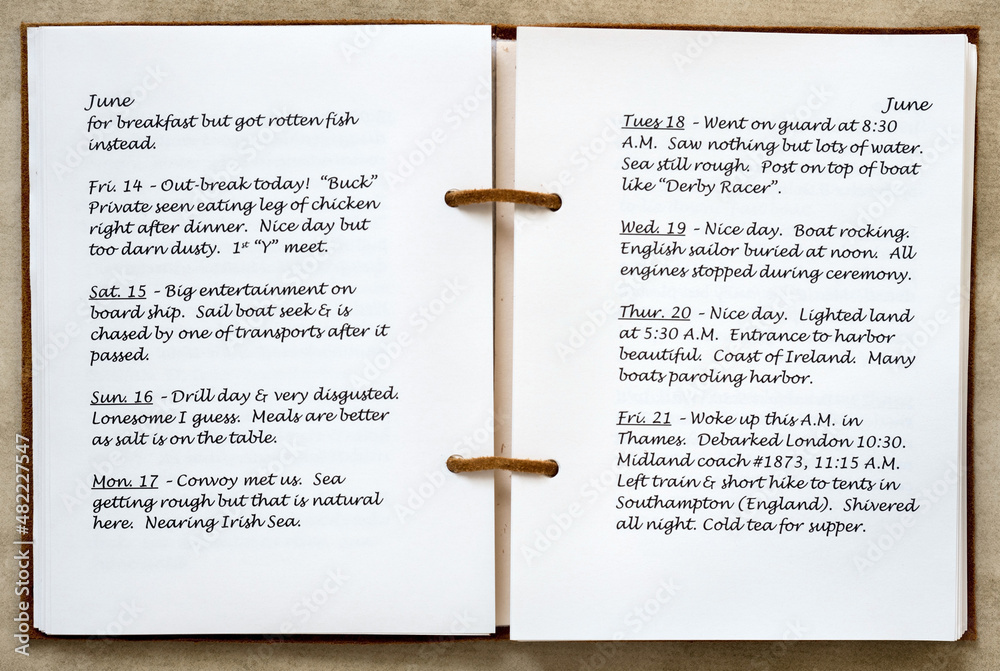 June
for breakfast but got rotten fish
instead.
Fri. 14 - Out-break today! "Buck"
Private seen eating leg of chicken
right after dinner. Nice day but
too darn dusty. 1st "Y" meet.
Sat. 15 - Big entertainment on
board ship. Sail boat seek & is
chased by one of transports after it
passed.
Sun. 16 - Drill day & very disgusted.
Lonesome I guess. Meals are better
as salt is on the table.
Mon. 17 - Convoy met us. Sea
getting rough but that is natural
here. Nearing Irish Sea.
June
Tues 18 - Went on guard at 8:30
A.M. Saw nothing but lots of water.
Sea still rough. Post on top of boat
like "Derby Racer".
Wed. 19 - Nice day. Boat rocking.
English sailor buried at noon. All
engines stopped during ceremony.
Thur. 20 - Nice day. Lighted land
at 5:30 A.M. Entrance to harbor
beautiful. Coast of Ireland. Many
boats paroling harbor.
Fri. 21 - Woke up this A.M. in
Thames. Debarked London 10:30.
Midland coach #1873, 11:15 A.M.
Left train & short hike to tents in
Southampton (England). Shivered
all night. Cold tea for supper.
Adobe Stock | #482227547